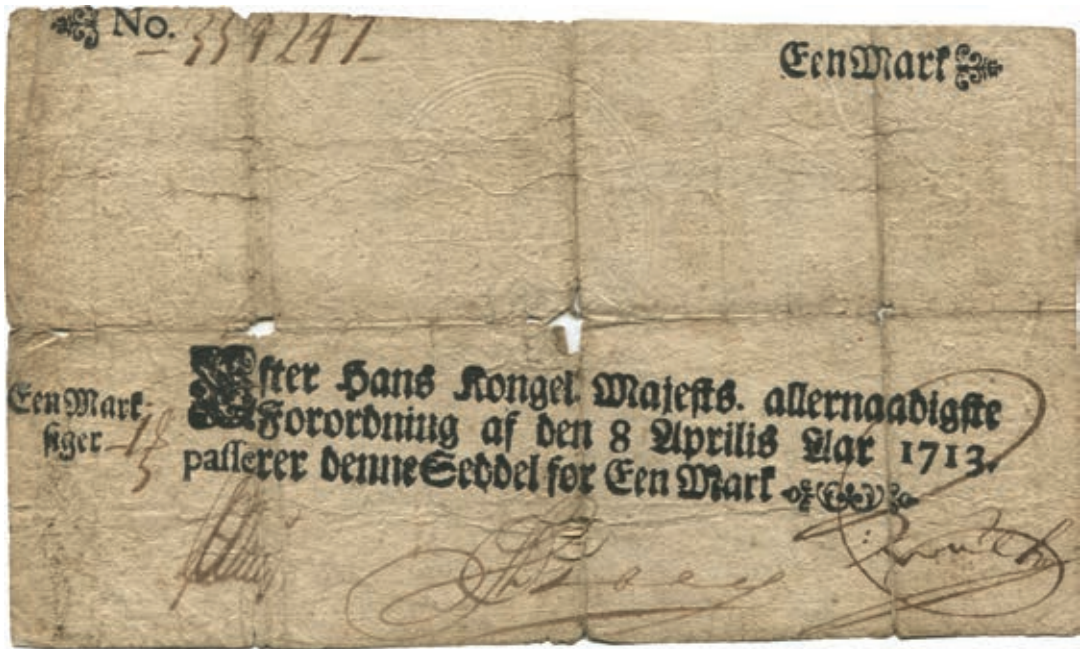 No. 339247
Een Mark
Een Mark
siger
Efter Hans Kongel. Majests. allernaadigste
Forordning af den 8 Aprilis Aar 1713.
passerer denne Seddel for Een Mark